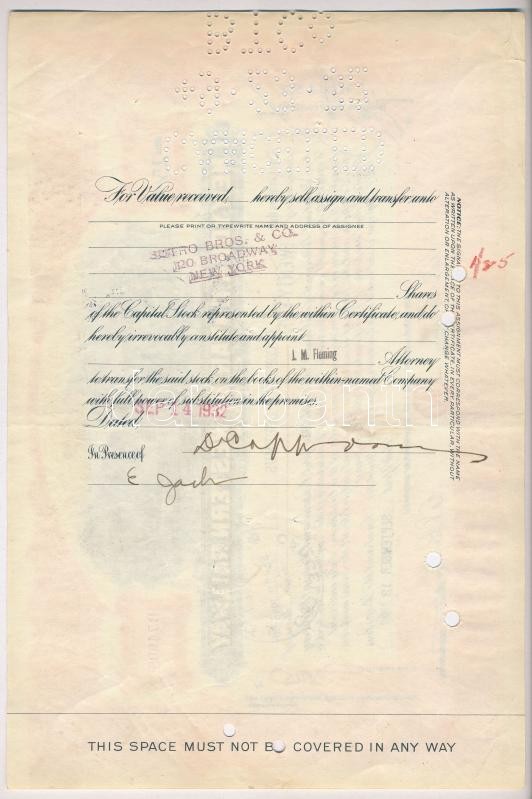 For Value received, hereby sell, assign and transfer unto
PLEASE PRINT OR TYPEWRITE NAME AND ADDRESS OF ASSIGNEE
BROS. & CO.
120 BROADWAY
NEW YORK
Shares
of the Capital Stock represented by the within Certificate, and do
hereby irrevocably constitute and appoint
J. M. Fleming
Attorney
to transfer the said stock on the books of the within-named Company
with full power of substitution in the premises.
Dated SEP 14 1932
In Presence of
E Jach
NOTICE: THE SIGNATURE TO THIS ASSIGNMENT MUST CORRESPOND WITH THE NAME
AS WRITTEN UPON THE FACE OF THE CERTIFICATE, IN EVERY PARTICULAR, WITHOUT
ALTERATION OR ENLARGEMENT, OR CHANGE WHATEVER.
THIS SPACE MUST NOT BE COVERED IN ANY WAY